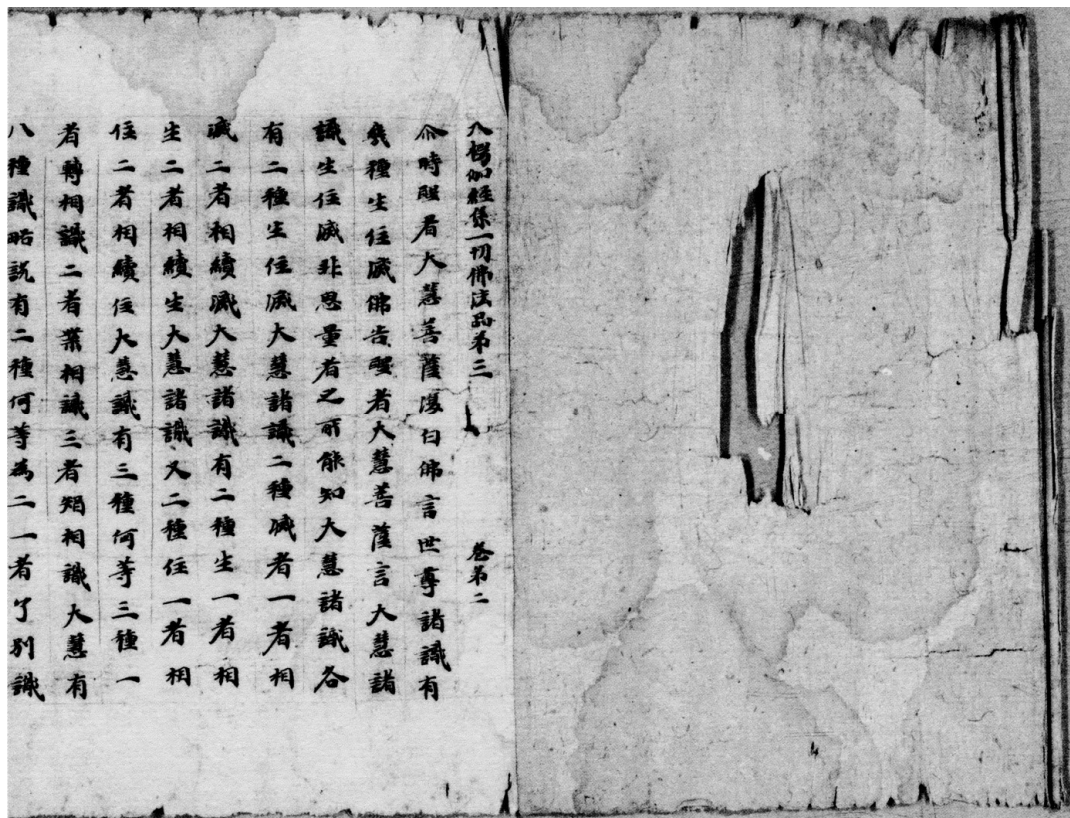 入楞伽經集一切佛法品第三 卷第二
尒時聖者大慧菩薩復白佛言世尊諸識有
幾種生住滅佛告聖者大慧菩薩言大慧諸
識生住滅非思量者之所能知大慧諸識各
有二種生住滅大慧諸識二種滅者一者相
滅二者相續滅大慧諸識有二種生一者相
生二者相續生大慧諸識又二種住一者相
住二者相續住大慧識有三種何等三種一
者轉相識二者業相識三者智相識大慧有
八種識略說有二種何等為二一者了別識